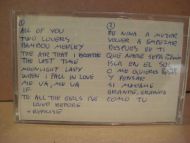 ①
ALL OF YOU
TWO LOVERS
BAMBOU MEDLEY
THE AIR THAT I BREATHE
THE LAST TIME
MOONLIGHT LADY
WHEN I FALL IN LOVE
ME VA, ME VA
IF
TO ALL THE GIRLS I'VE
LOVED BEFORE
+ REPRISE
②
DE NIÑA A MUJER
VOLVER A EMPEZAR
DESPUES DE TI
QUE NADIE SEPA
ISLA EN EL SOL
O ME QUIERES
Y PENSAR
SI
GRANDE, GRANDE
COMO TU